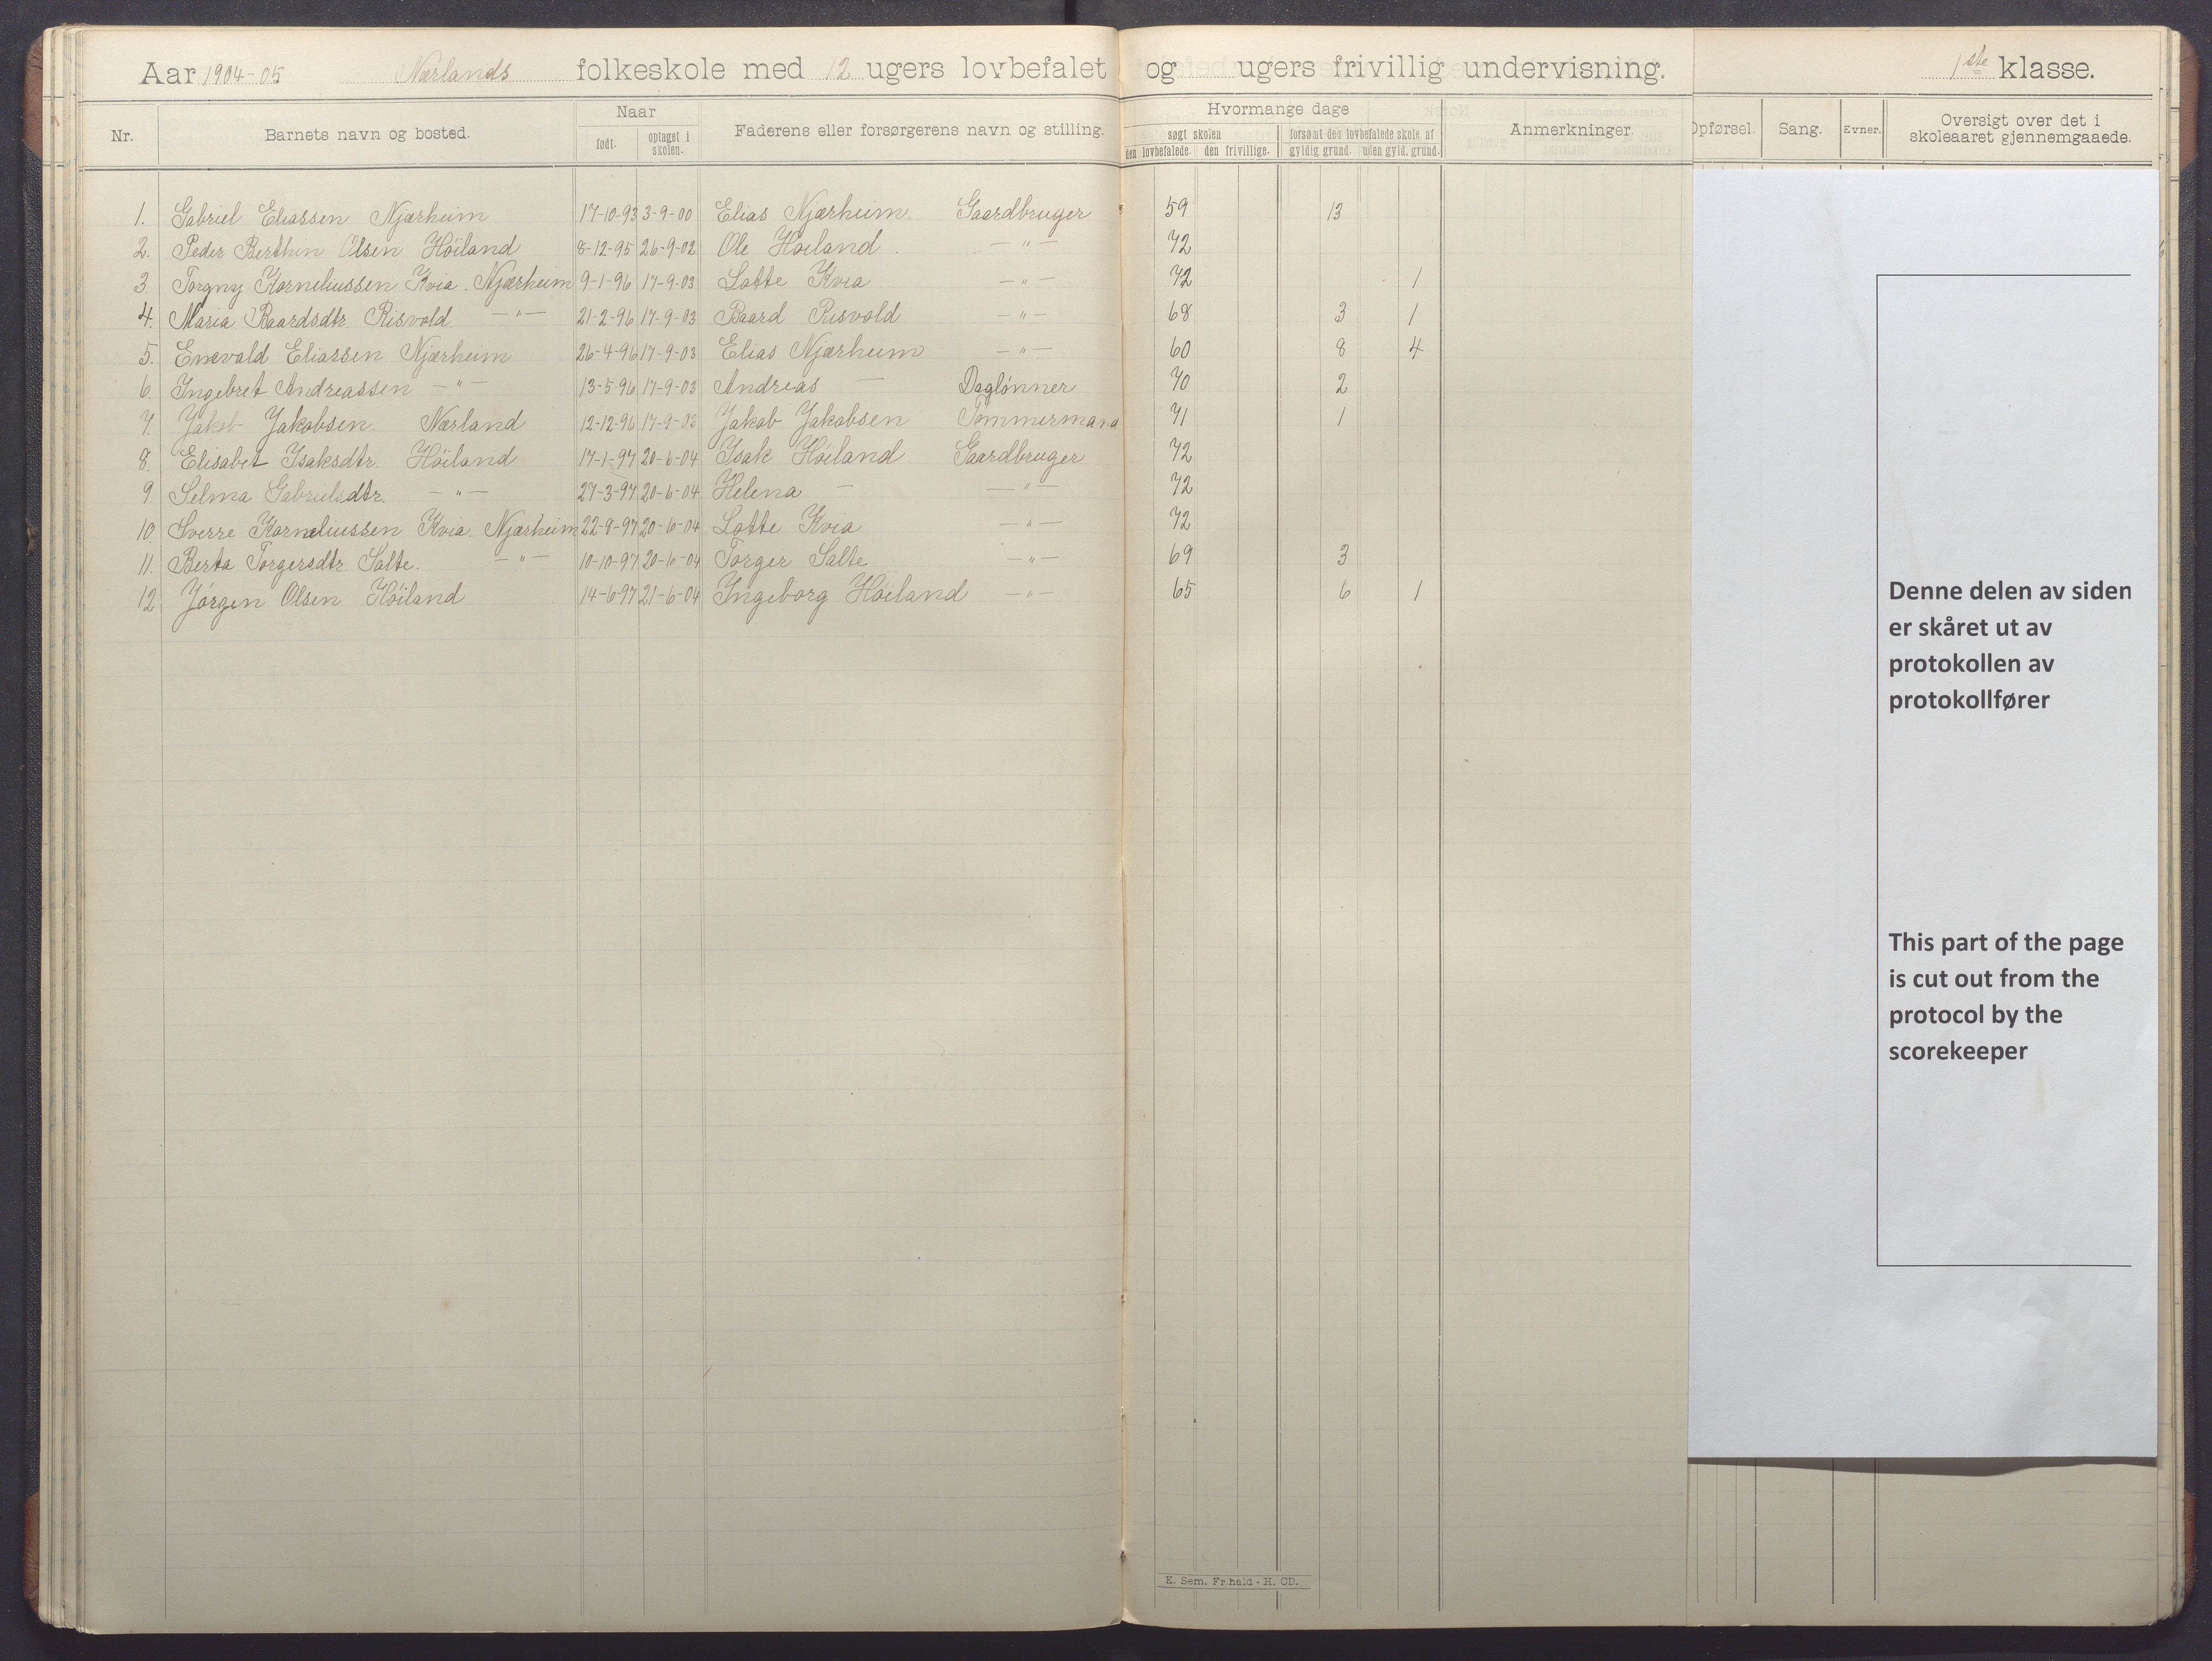 Aar 1904-05 Nærlands folkeskole med 12 ugers lovbefalet og ugers frivillig undervisning. 1ste klasse.
Nr. Barnets navn og bosted. Naar født. optaget i skolen. Faderens eller forsørgerens navn og stilling. Hvormange dage søgt skolen den lovbefalede. den frivillige. forsømt den lovbefalede skole af gyldig grund. uden gyld. grund. Anmerkninger. Opførsel. Sang. Evner. Oversigt over det i skoleaaret gjennemgaaede.
1. Gabriel Eliassen Njærheim 17-10-93 3-9-00 Elias Njærheim. Gaardbruger 59 13
2. Peder Berthin Olsen Höiland 8-12-95 26-9-02 Ole Höiland — " — 72
3. Torgny Korneliussen Kvia - Njærheim 9-1-96 17-9-03 Lotte Kvia — " — 72 1
4. Maria Baardsdtr. Risvold. — " — 21-2-96 17-9-03 Baard Risvold — " — 68 3 1
5. Enevald Eliassen Njærheim 26-4-96 17-9-03 Elias Njærheim — " — 60 8 4
6. Ingebret Andreassen — " — 13-5-96 17-9-03 Andreas — Daglönner 70 2
7. Jakob Jakobsen. Nærland 12-12-96 17-9-03 Jakob Jakobsen Tömmermand 71 1
8. Elisabet Isaksdtr. Höiland 17-1-97 20-6-04 Isak Höiland Gaardbruger 72
9. Selma Gabrielsdtr. — " — 27-3-97 20-6-04 Helena — — " — 72
10. Sverre Korneliussen Kvia. Njærheim 22-8-97 20-6-04 Lotte Kvia — " — 72
11. Berta Torgersdtr Salte. — " — 10-10-97 20-6-04 Torger Salte — " — 69 3
12. Jörgen Olsen Höiland 14-6-97 21-6-04 Ingeborg Höiland — " — 65 6 1
Denne delen av siden
er skåret ut av
protokollen av
protokollfører
This part of the page
is cut out from the
protocol by the
scorekeeper
E. Sem. Fr.hald - H. CD.